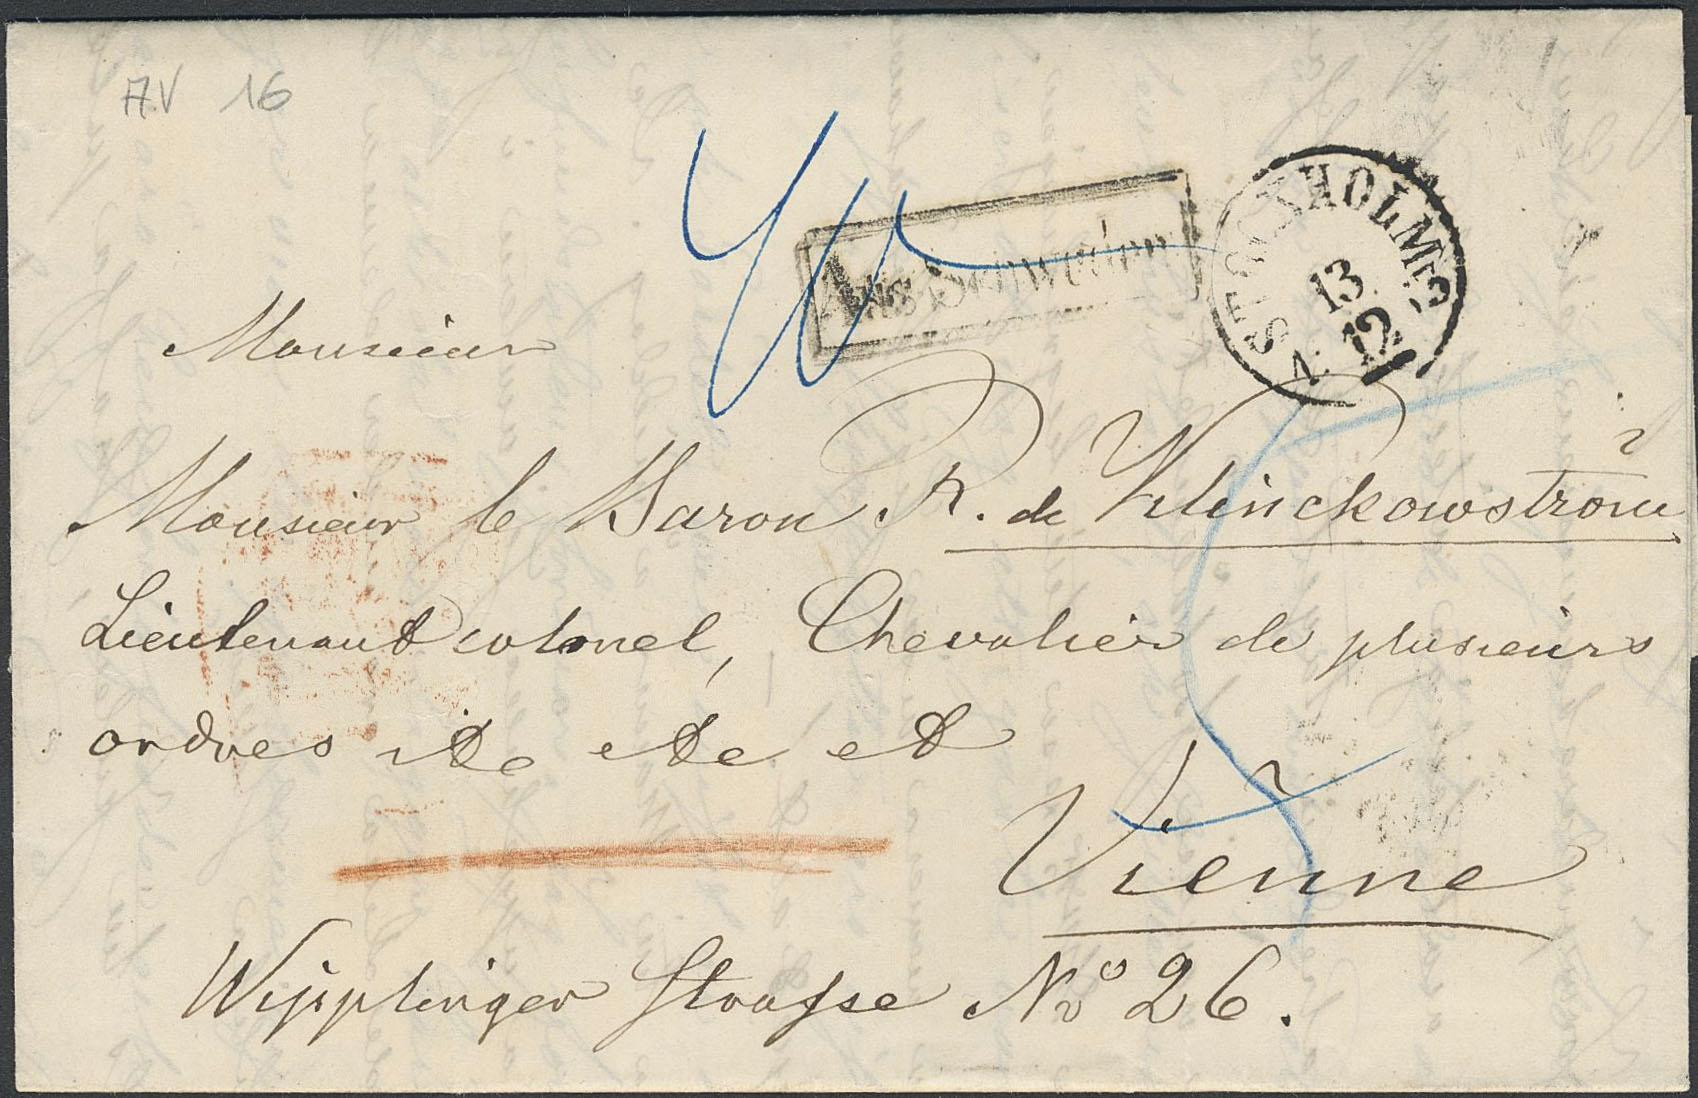 AV 16
Aus Schweden
STOCKHOLM
13
12
Monsieur
Monsieur le Baron R. de Klinckowström
Lieutenant colonel, Chevalier de plusieurs
ordres etc etc et
Vienne
Wipplinger Strasse No 26.